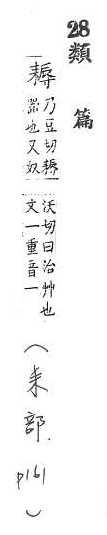 28類篇
耨
乃豆切耨
器也又奴
沃切曰治艸也
文一重音一
(耒部. p161)